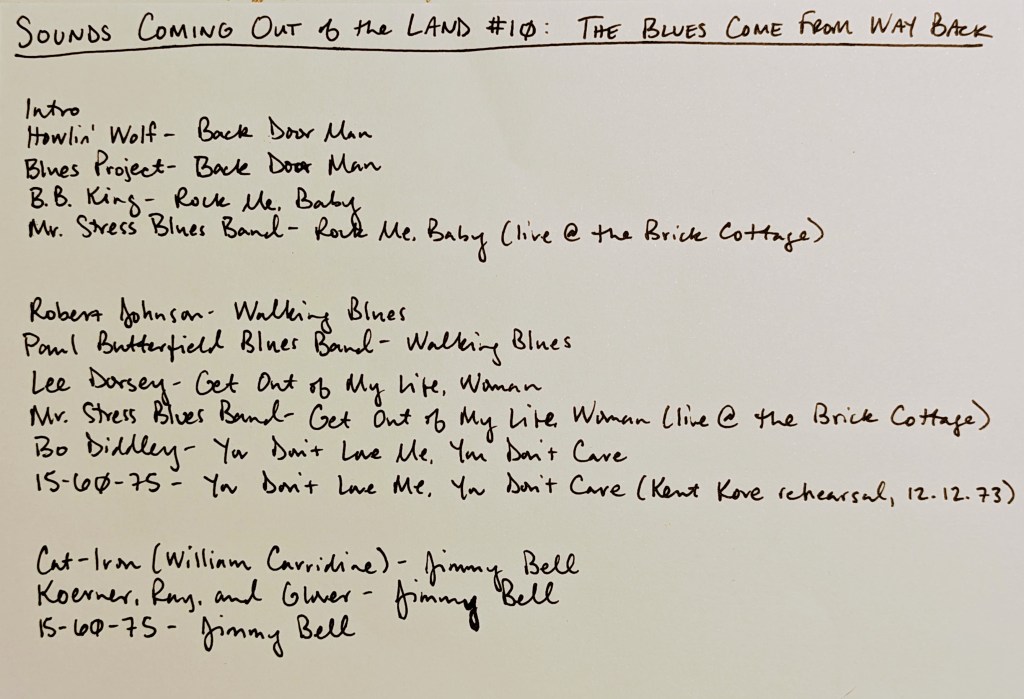 SOUNDS COMING OUT of the LAND #10: THE BLUES COME FROM WAY BACK
Intro
Howlin' Wolf - Back Door Man
Blues Project - Back Door Man
B.B. King - Rock Me, Baby
Mr. Stress Blues Band - Rock Me, Baby (live @ the Brick Cottage)
Robert Johnson - Walking Blues
Paul Butterfield Blues Band - Walking Blues
Lee Dorsey - Get Out of My Life, Woman
Mr. Stress Blues Band - Get Out of My Life, Woman (live @ the Brick Cottage)
Bo Diddley - You Don't Love Me, You Don't Care
15-60-75 - You Don't Love Me, You Don't Care (Kent Kove rehearsal, 12.12.73)
Cat-Iron (William Carridine) - Jimmy Bell
Koerner, Ray, and Glover - Jimmy Bell
15-60-75 - Jimmy Bell